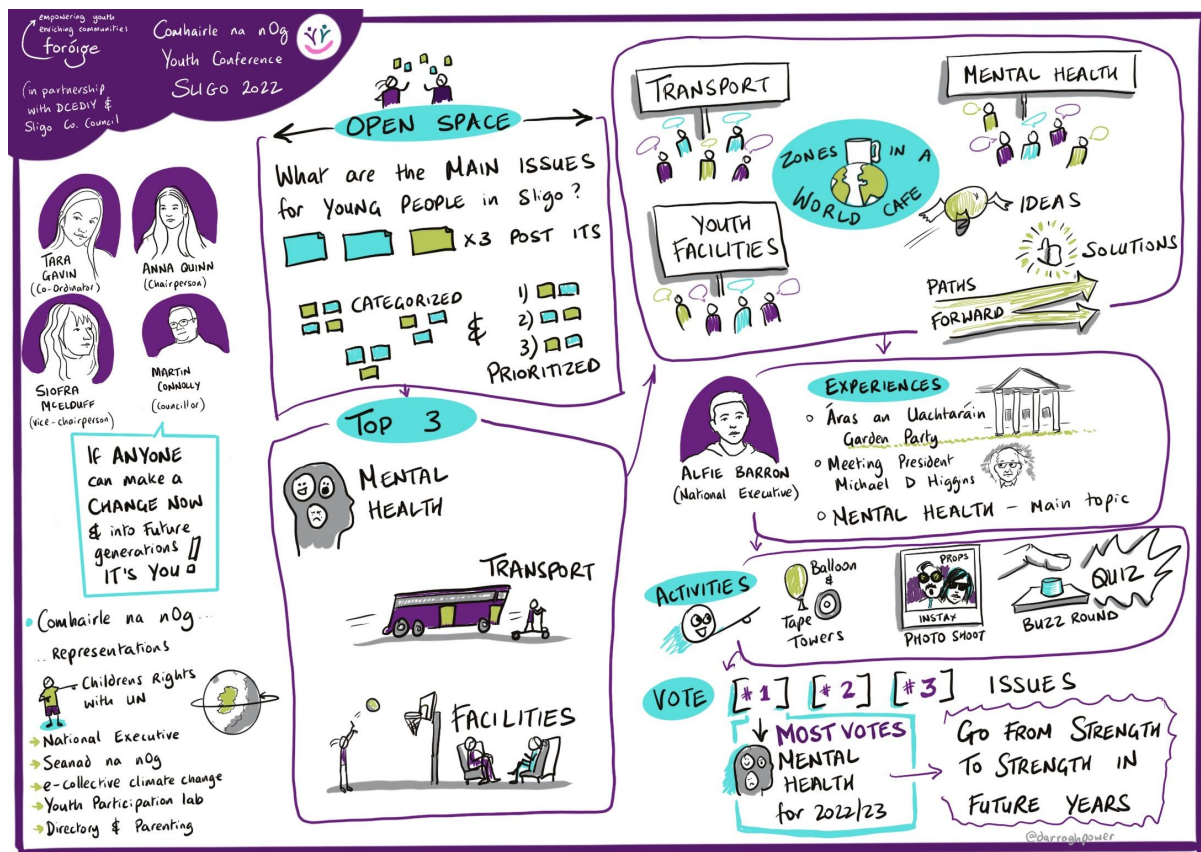 empowering youth
enriching communities
foróige
(in partnership
with DCEDIY &
Sligo Co. Council
Comhairle na nOg
Youth Conference
SLIGO 2022
TARA
GAVIN
(Co-Ordinator)
ANNA QUINN
(Chairperson)
SIOFRA
MCELDUFF
(vice-chairperson)
MARTIN
CONNOLLY
(Councillor)
IF ANYONE
can make a
CHANGE NOW
& into Future
generations
IT'S YOU!
Comhairle na nOg...
.. Representations
Childrens Rights
with UN
National Executive
Seanad na nOg
e-collective climate change
Youth Participation lab
Directory & Parenting
OPEN SPACE
What are the MAIN ISSUES
for YOUNG PEOPLE in Sligo?
x3 POST ITS
CATEGORIZED
&
1)
2)
3)
PRIORITIZED
TOP 3
MENTAL
HEALTH
TRANSPORT
FACILITIES
TRANSPORT
MENTAL HEALTH
ZONES IN A
WORLD CAFE
YOUTH
FACILITIES
IDEAS
SOLUTIONS
PATHS
FORWARD
ALFIE BARRON
(National Executive)
EXPERIENCES
Áras an Uachtaráin
Garden Party
Meeting President
Michael D Higgins
MENTAL HEALTH - Main topic
ACTIVITIES
Balloon
&
Tape
Towers
PROPS
INSTAX
PHOTO SHOOT
BUZZ ROUND
QUIZ
VOTE
[#1] [#2] [#3] ISSUES
MOST VOTES
MENTAL
HEALTH
for 2022/23
GO FROM STRENGTH
TO STRENGTH IN
FUTURE YEARS
@darraghpower